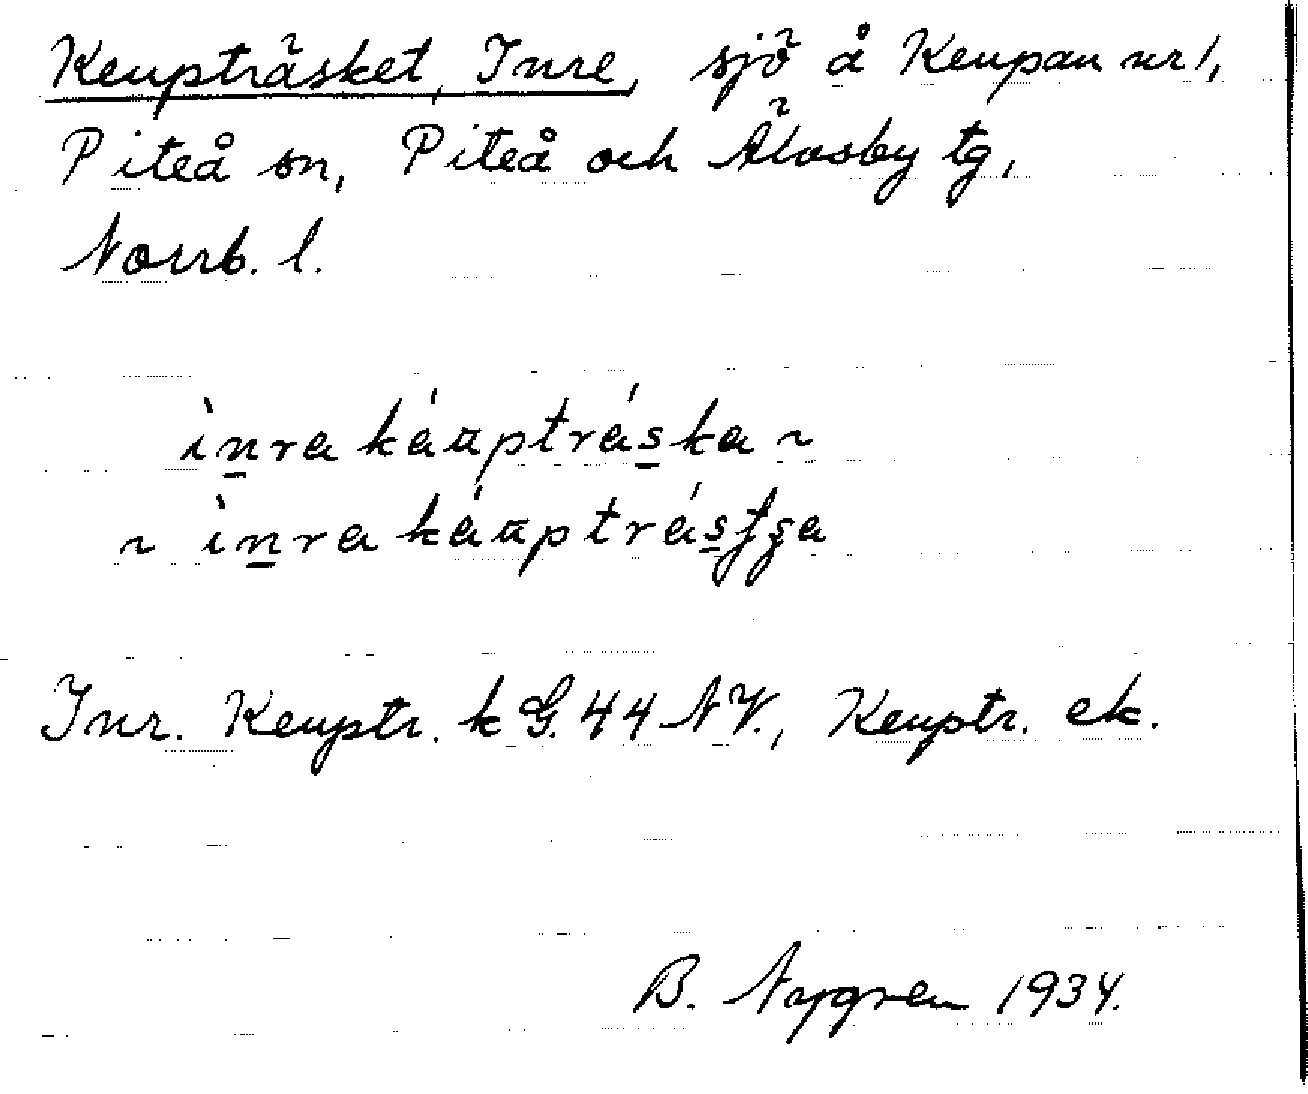 Keupträsket, Inre, sjö å Keupan nr 1,
Piteå sn, Piteå och Älvsby tg,
Norrb. l.
ìnra káuptráska ~
~ ìnra káuptrás
Inr. Keuptr. k G. 44 NV., Keuptr. ek.
B. Nygren 1934.